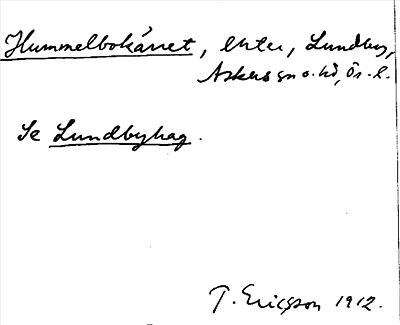 Hummelbokärret, ehter, Lundby,
Askers sn o. hd, Ör. l.
Se Lundbyhag.
T. Ericsson 1912.